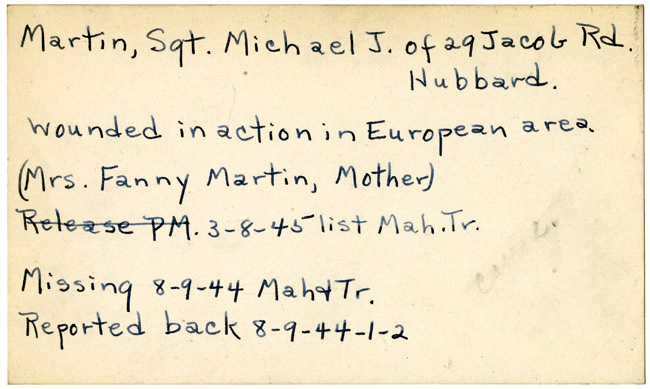 Martin, Sgt. Michael J. of 29 Jacob Rd.
Hubbard.
wounded in action in European area.
(Mrs. Fanny Martin, Mother)
Release PM. 3-8-45 list Mah.Tr.
Missing 8-9-44 Mah & Tr.
Reported back 8-9-44-1-2